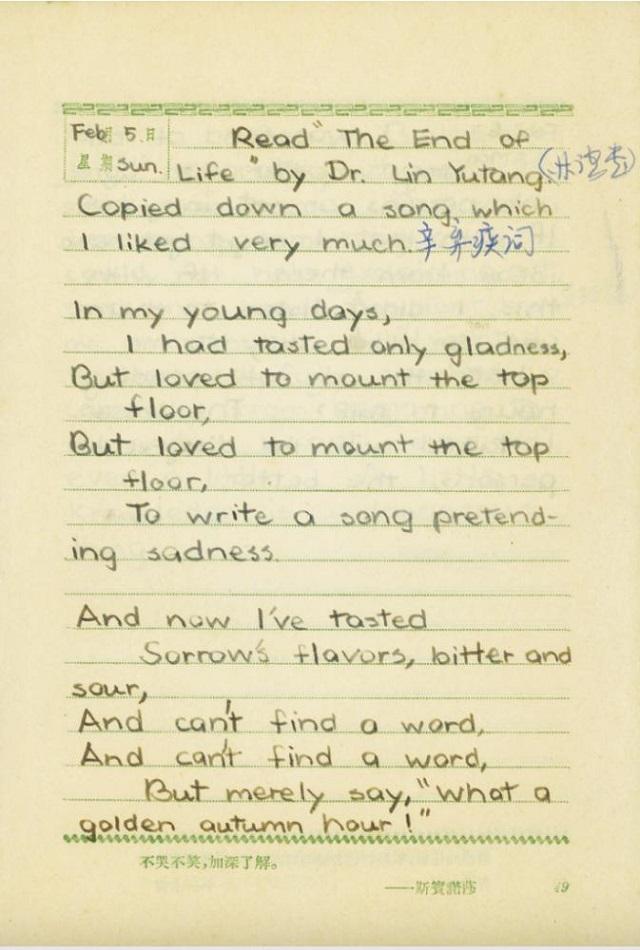 Feb 月 5 日 Read "The End of
星期 Sun. Life" by Dr. Lin Yutang. (林语堂)
Copied down a song, which
I liked very much. 辛弃疾词
In my young days,
I had tasted only gladness,
But loved to mount the top
floor,
But loved to mount the top
floor,
To write a song pretend-
ing sadness.
And now I've tasted
Sorrow's flavors, bitter and
sour,
And can't find a word,
And can't find a word,
But merely say, "What a
golden autumn hour!"
不哭不笑,加深了解。
——斯賓諾莎 49